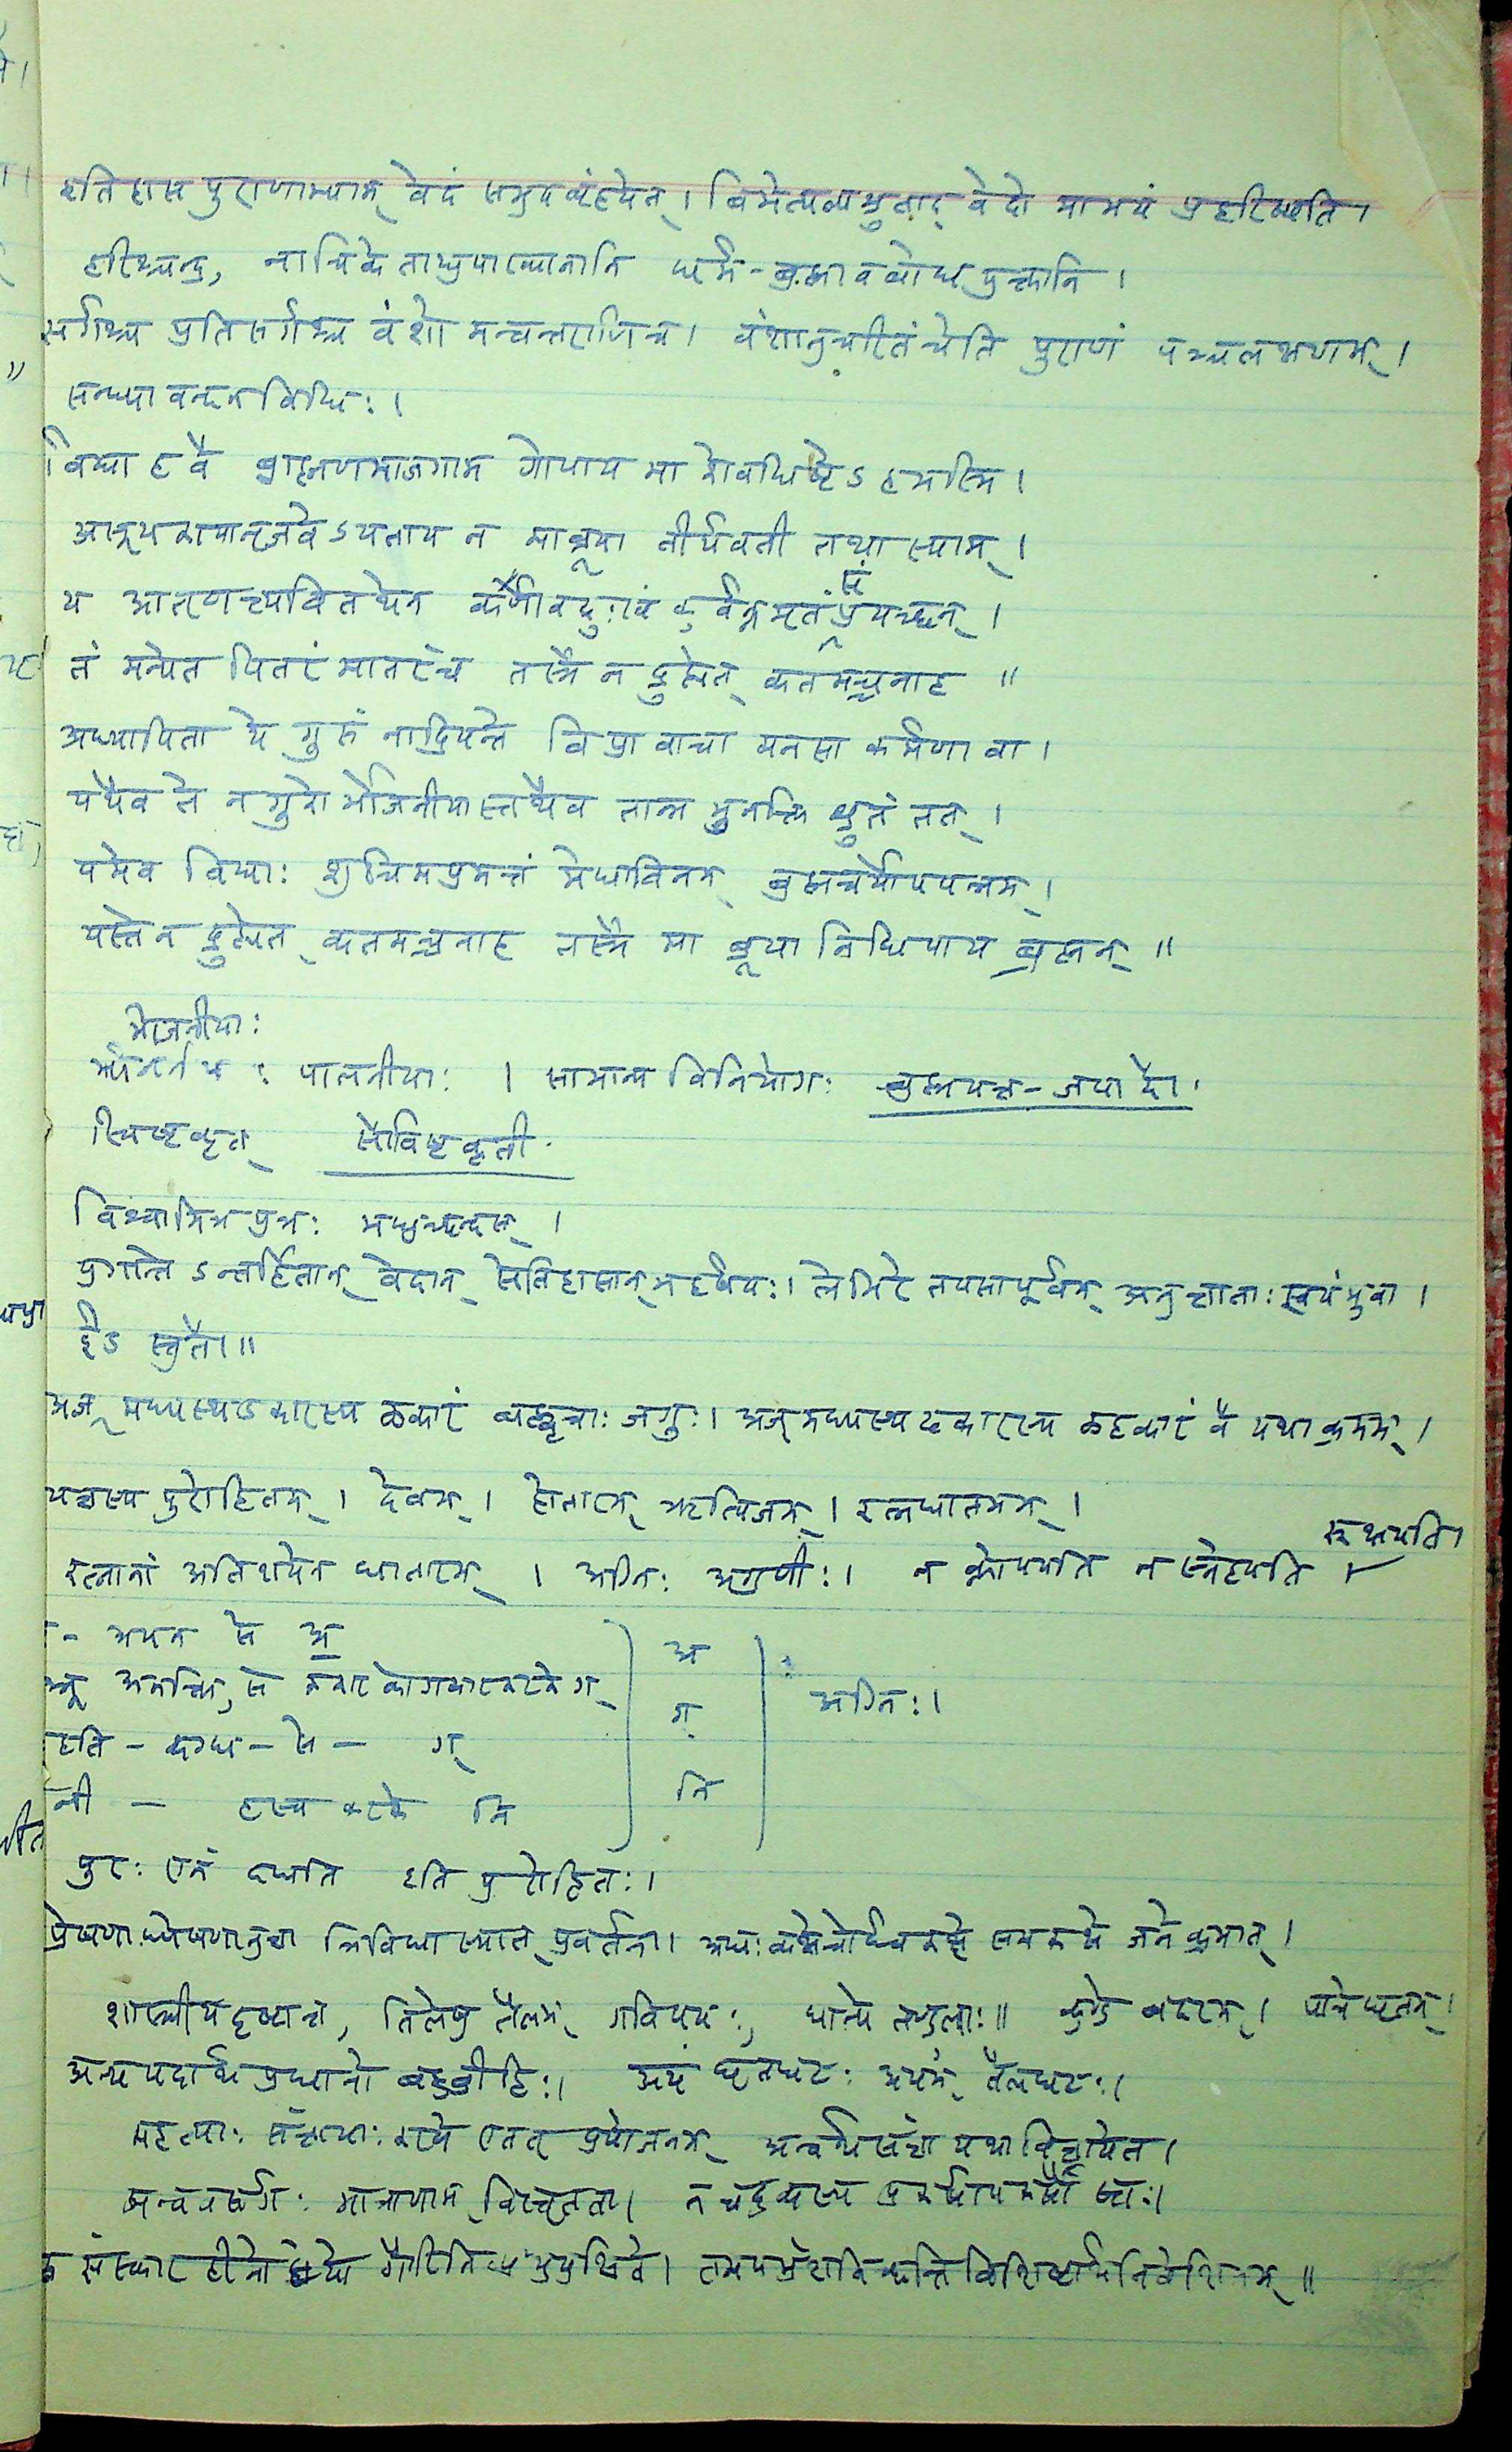 इतिहास पुराणाभ्याम् वेदं समुपबृंहयेत् । बिभेत्यल्पश्रुताद् वेदो मामयं प्रहरिष्यति ।
हरिश्चन्द्र, नाचिकेताद्युपाख्यानानि धर्म-ब्रह्मावबोध युक्तानि ।
सर्गश्च प्रतिसर्गश्च वंशो मन्वन्तराणि च । वंशानुचरितं चेति पुराणं पञ्चलक्षणम् ।
सन्ध्या वन्दन विधिः ।
विद्या ह वै ब्राह्मणमाजगाम गोपाय मा शेवधिष्टेऽहमस्मि ।
असूयकायानृजवेऽयताय न मा ब्रूया वीर्यवती तथा स्याम् ।
य आतृणत्त्यवितथेन कर्णावदुःखं कुर्वन्नमृतं संप्रयच्छन् ।
तं मन्येत पितरं मातरंच तस्मै न द्रुह्येत् कतमच्चनाह ॥
अध्यापिता ये गुरुं नाद्रियन्ते विप्रा वाचा मनसा कर्मणा वा ।
यथैव ते न गुरो र्भोजनीयास्तथैव तान्न भुनक्ति श्रुतं तत् ।
यमेव विद्याः शुचिमप्रमत्तं मेधाविनम् ब्रह्मचर्योपपन्नम् ।
यस्ते न द्रुह्येत् कतमच्चनाह तस्मै मा ब्रूया निधिपाय ब्रह्मन् ॥
भोजनीयाः
पालनीयाः । सामान्य विनियोगः ब्रह्मयज्ञ-जपादौ ।
स्विष्टकृत् सौविष्टकृती
विश्वामित्र पुत्रः मधुच्छन्दस् ।
युगान्तेऽन्तर्हितान् वेदान् सेतिहासान् महर्षयः । लेभिरे तपसा पूर्वम् अनुज्ञाताः स्वयंभुवा ।
ईड स्तुतौ ॥
अज् मध्यस्थ डकारस्य ळकारं बह्वृचाः जगुः । अज् मध्यस्थ ढकारस्य ळ्हकारं वै यथाक्रमम् ।
यज्ञस्य पुरोहितम् । देवम् । होतारम् ऋत्विजम् । रत्नधातमम् ।
रत्नानां अतिशयेन धातारम् । अग्निः अग्रणीः । न क्नोपयति न स्नेहयति रूक्षयति ।
- अयन से अ
अनक्ति, से ककार को गकार करके ग्
दहति - दग्ध - से - ग्
नी - ह्रस्व करके नि
अ
ग्
नि
अग्निः ।
पुरः एनं दधाति इति पुरोहितः ।
प्रेषणाध्येषणानुज्ञा त्रिविधा स्यात् प्रवर्तना । अधःकक्षे चोर्ध्वकक्षे समकक्षे जने क्रमात् ।
शास्त्रीय दृष्टान्त, तिलेषु तैलम् गवि पयः, धान्ये तण्डुलाः ॥ कुण्डे बदरम् । पात्रे घृतम् ।
अन्य पदार्थ प्रधानो बहुव्रीहिः । अयं घृतघटः अयम् तैलघटः ।
महत्याः संज्ञायाः करणे एतत् प्रयोजनम् अन्वर्थ संज्ञा यथा विज्ञायेत ।
अन्ववसर्गः मात्राणाम् विस्तृतता । न च द्रव्यस्य प्रकर्षापकर्षौ स्तः ।
संस्कार हीनो गौरिति प्रयुयुक्षिते । तमपभ्रंशमिच्छन्ति विशिष्टार्थनिवेशिनम् ॥